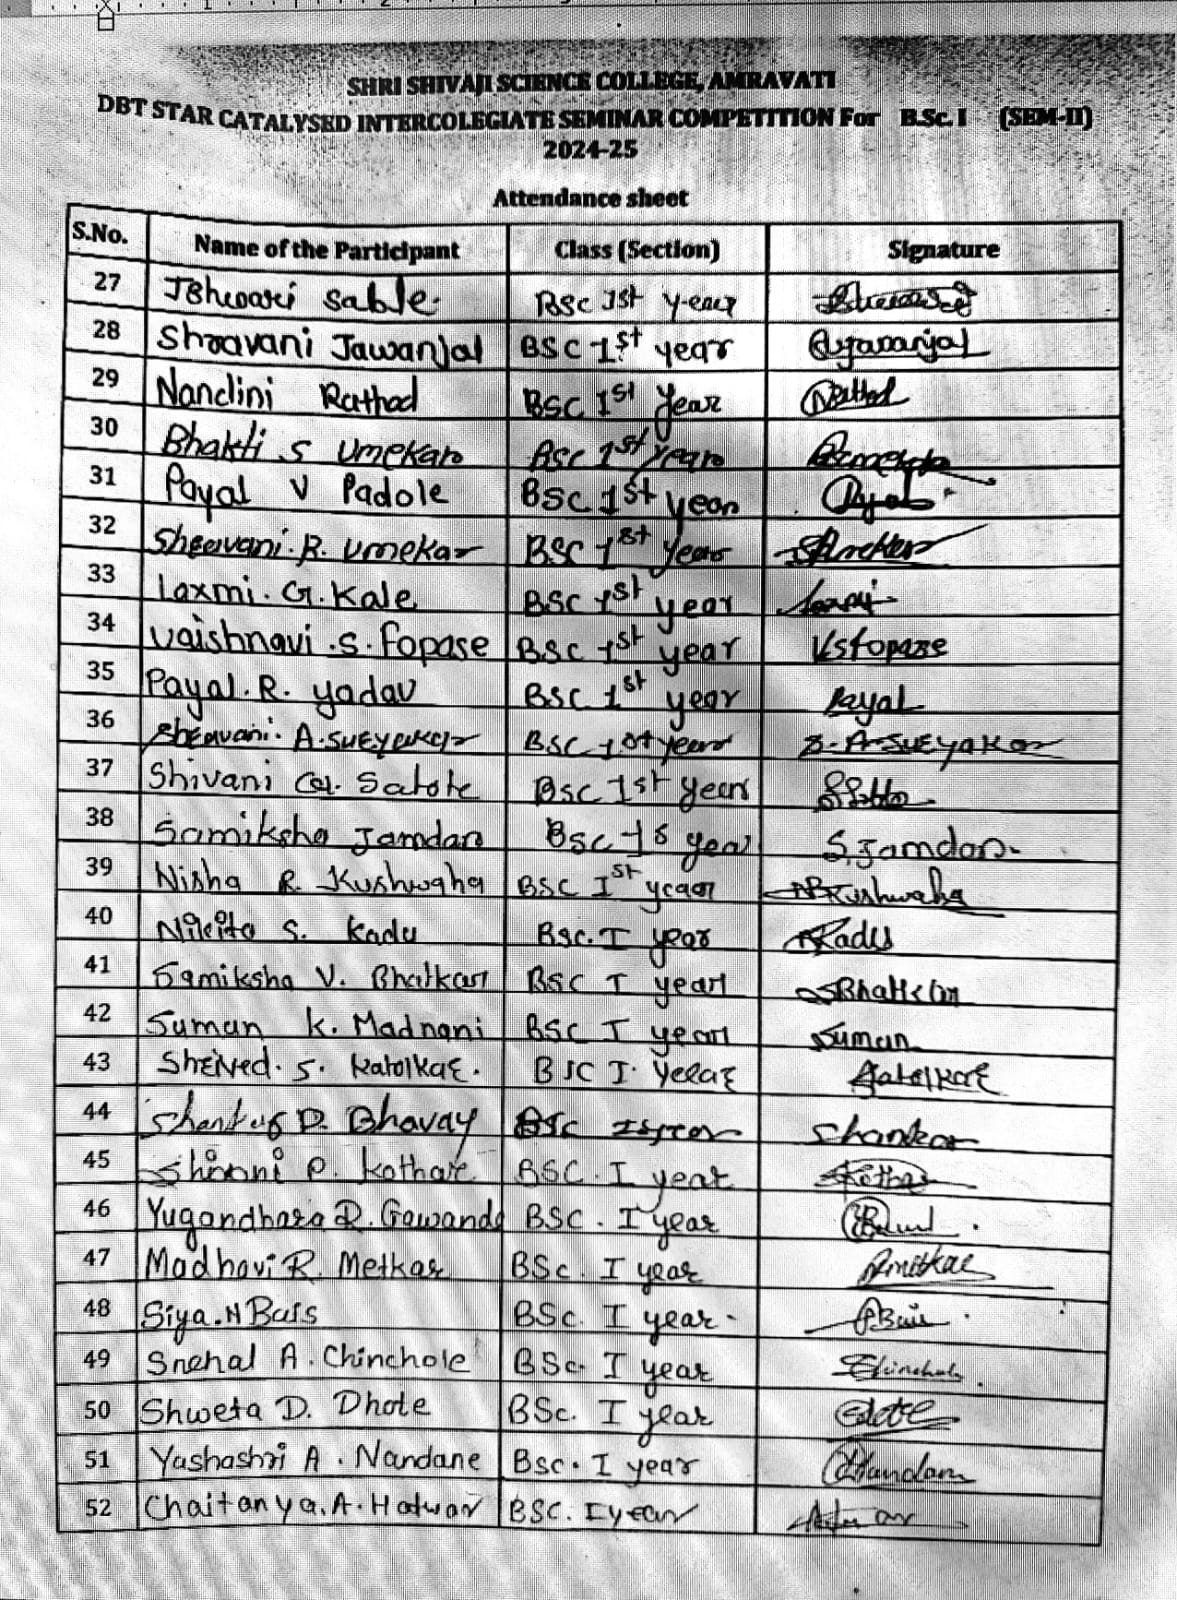 SHRI SHIVAJI SCIENCE COLLEGE, AMRAVATI
DBT STAR CATALYSED INTERCOLEGIATE SEMINAR COMPETITION For B.Sc. I (SEM-II)
2024-25
Attendance sheet
S.No. Name of the Participant Class (Section) Signature
27 Sable. BSc 1st year
28 Shravani Jawanjal BSC 1st year
29 Nandini Rathod BSC 1st Year Rathod
30 Bhakti S Umekar BSc 1st year
31 Payal V Padole BSC 1st year Payal
32 Shravani. R. Umekar BSC 1st year
33 Laxmi. G. Kale BSC 1st year Laxmi
34 Vaishnavi .S. Fopase BSC 1st year VsFopase
35 Payal. R. yadav BSC 1st year Payal
36 A. BSC 1st year
37 Shivani G. Satote BSC 1st year
38 Samiksha Jamdar BSC 1s year S.Jamdar.
39 Nisha R. Kushwaha BSC Ist year NRKushwaha
40 Nikita S. Kadu BSC. I year NKadu
41 Samiksha V. Bhatkar BSC I year SBhatkar
42 Suman K. Madnani BSC I year Suman
43 S. Katolkar. BSC I. Year Katolkar
44 Shankar D. Bhavay BSC I year Shankar
45 P. Kothare BSC. I year
46 Yugandhara D. Gawande BSC. I year
47 Madhavi R. Metkar BSc. I year RMetkar
48 Siya. N Bais BSC. I year. Bais
49 Snehal A. Chinchole BSc. I year Chinchole.
50 Shweta D. Dhote BSc. I year
51 Yashashri A. Nandane Bsc. I year Nandane
52 Chaitanya. A. Hatwar BSC. I year